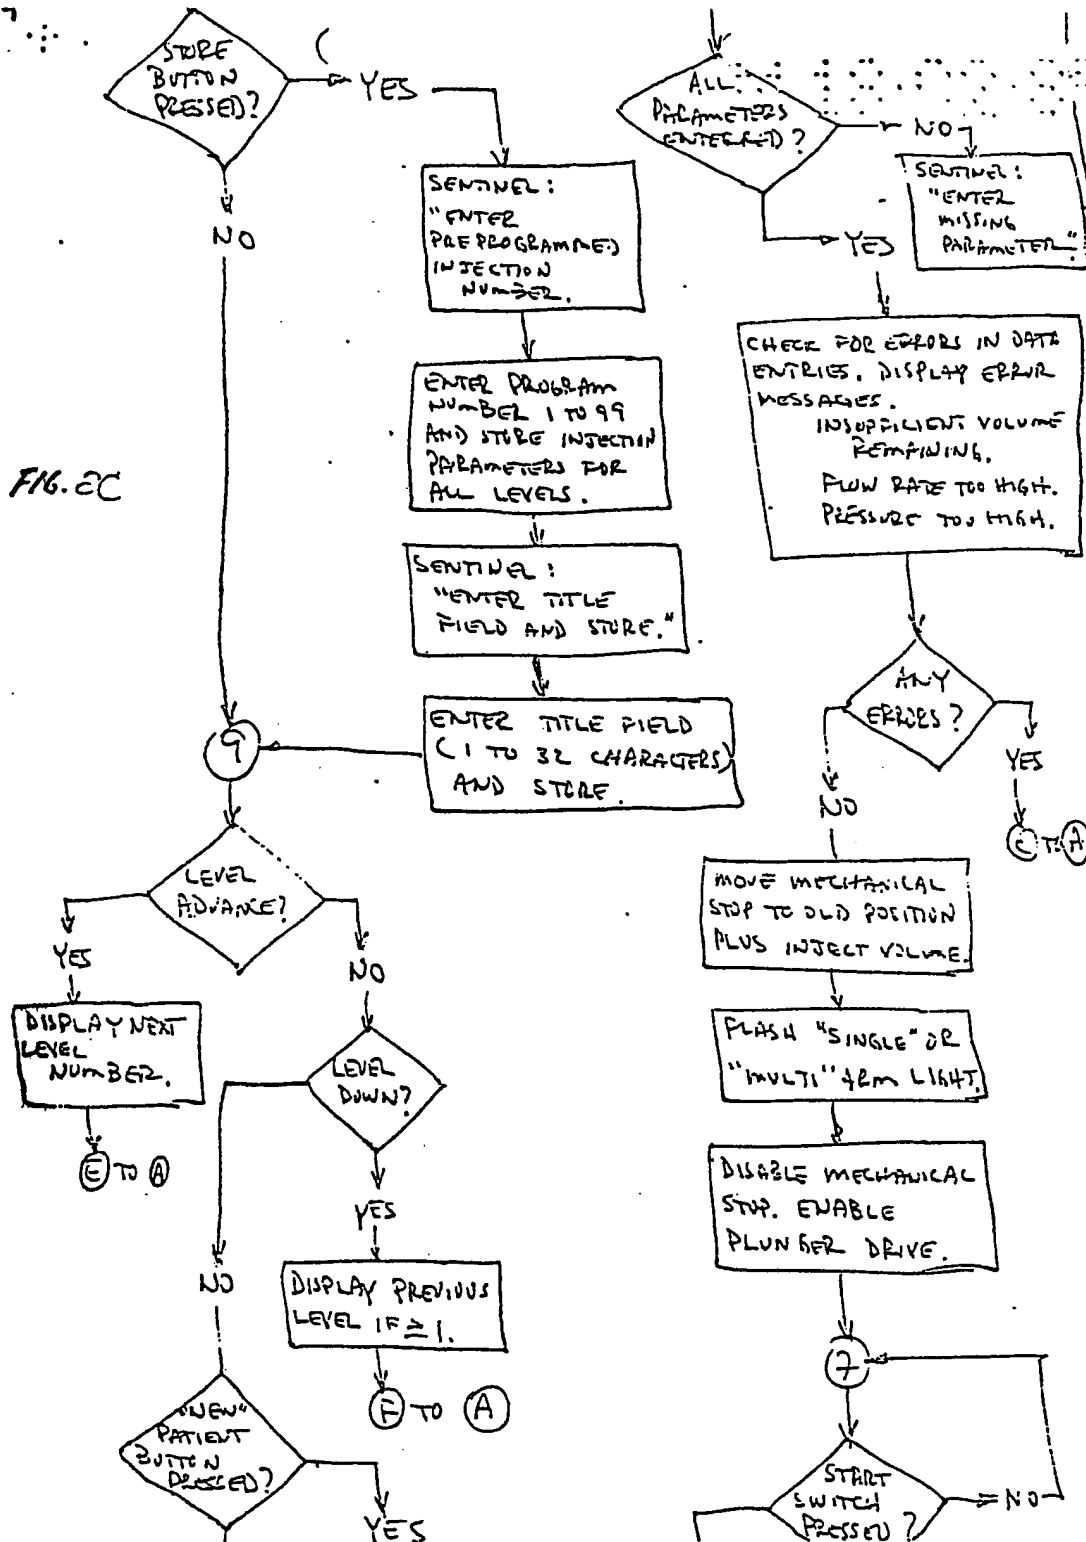 STORE
BUTTON
PRESSED?
YES
NO
SENTINEL:
"ENTER
PREPROGRAMMED
INJECTION
NUMBER.
ENTER PROGRAM
NUMBER 1 TO 99
AND STORE INJECTION
PARAMETERS FOR
ALL LEVELS.
SENTINEL:
"ENTER TITLE
FIELD AND STORE."
ENTER TITLE FIELD
(1 TO 32 CHARACTERS)
AND STORE.
FIG. 2C
9
LEVEL
ADVANCE?
YES
NO
DISPLAY NEXT
LEVEL
NUMBER.
E TO A
LEVEL
DOWN?
YES
NO
DISPLAY PREVIOUS
LEVEL IF ≥ 1.
F TO A
"NEW"
PATIENT
BUTTON
PRESSED?
YES
ALL
PARAMETERS
ENTERED?
NO
SENTINEL:
"ENTER
MISSING
PARAMETER."
YES
CHECK FOR ERRORS IN DATA
ENTRIES. DISPLAY ERROR
MESSAGES.
INSUFFICIENT VOLUME
REMAINING.
FLOW RATE TOO HIGH.
PRESSURE TOO HIGH.
ANY
ERRORS?
YES
C TO A
NO
MOVE MECHANICAL
STOP TO OLD POSITION
PLUS INJECT VOLUME.
FLASH "SINGLE" OR
"MULTI" ARM LIGHT.
DISABLE MECHANICAL
STOP. ENABLE
PLUNGER DRIVE.
7
START
SWITCH
PRESSED?
NO